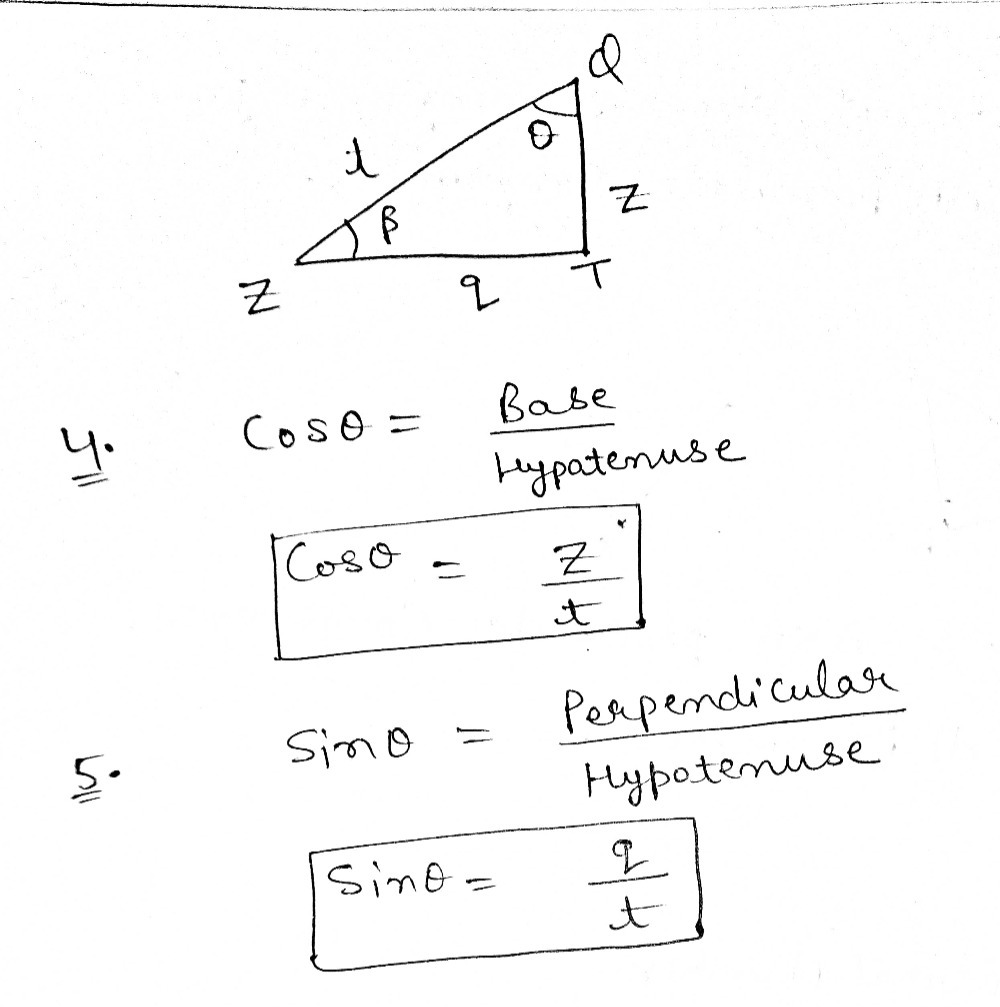 Q
θ
t
Z
β
Z
q
T
4. Cosθ = Base
Hypatenuse
Cosθ = Z
t
5. Sinθ = Perpendicular
Hypotenuse
Sinθ = q
t